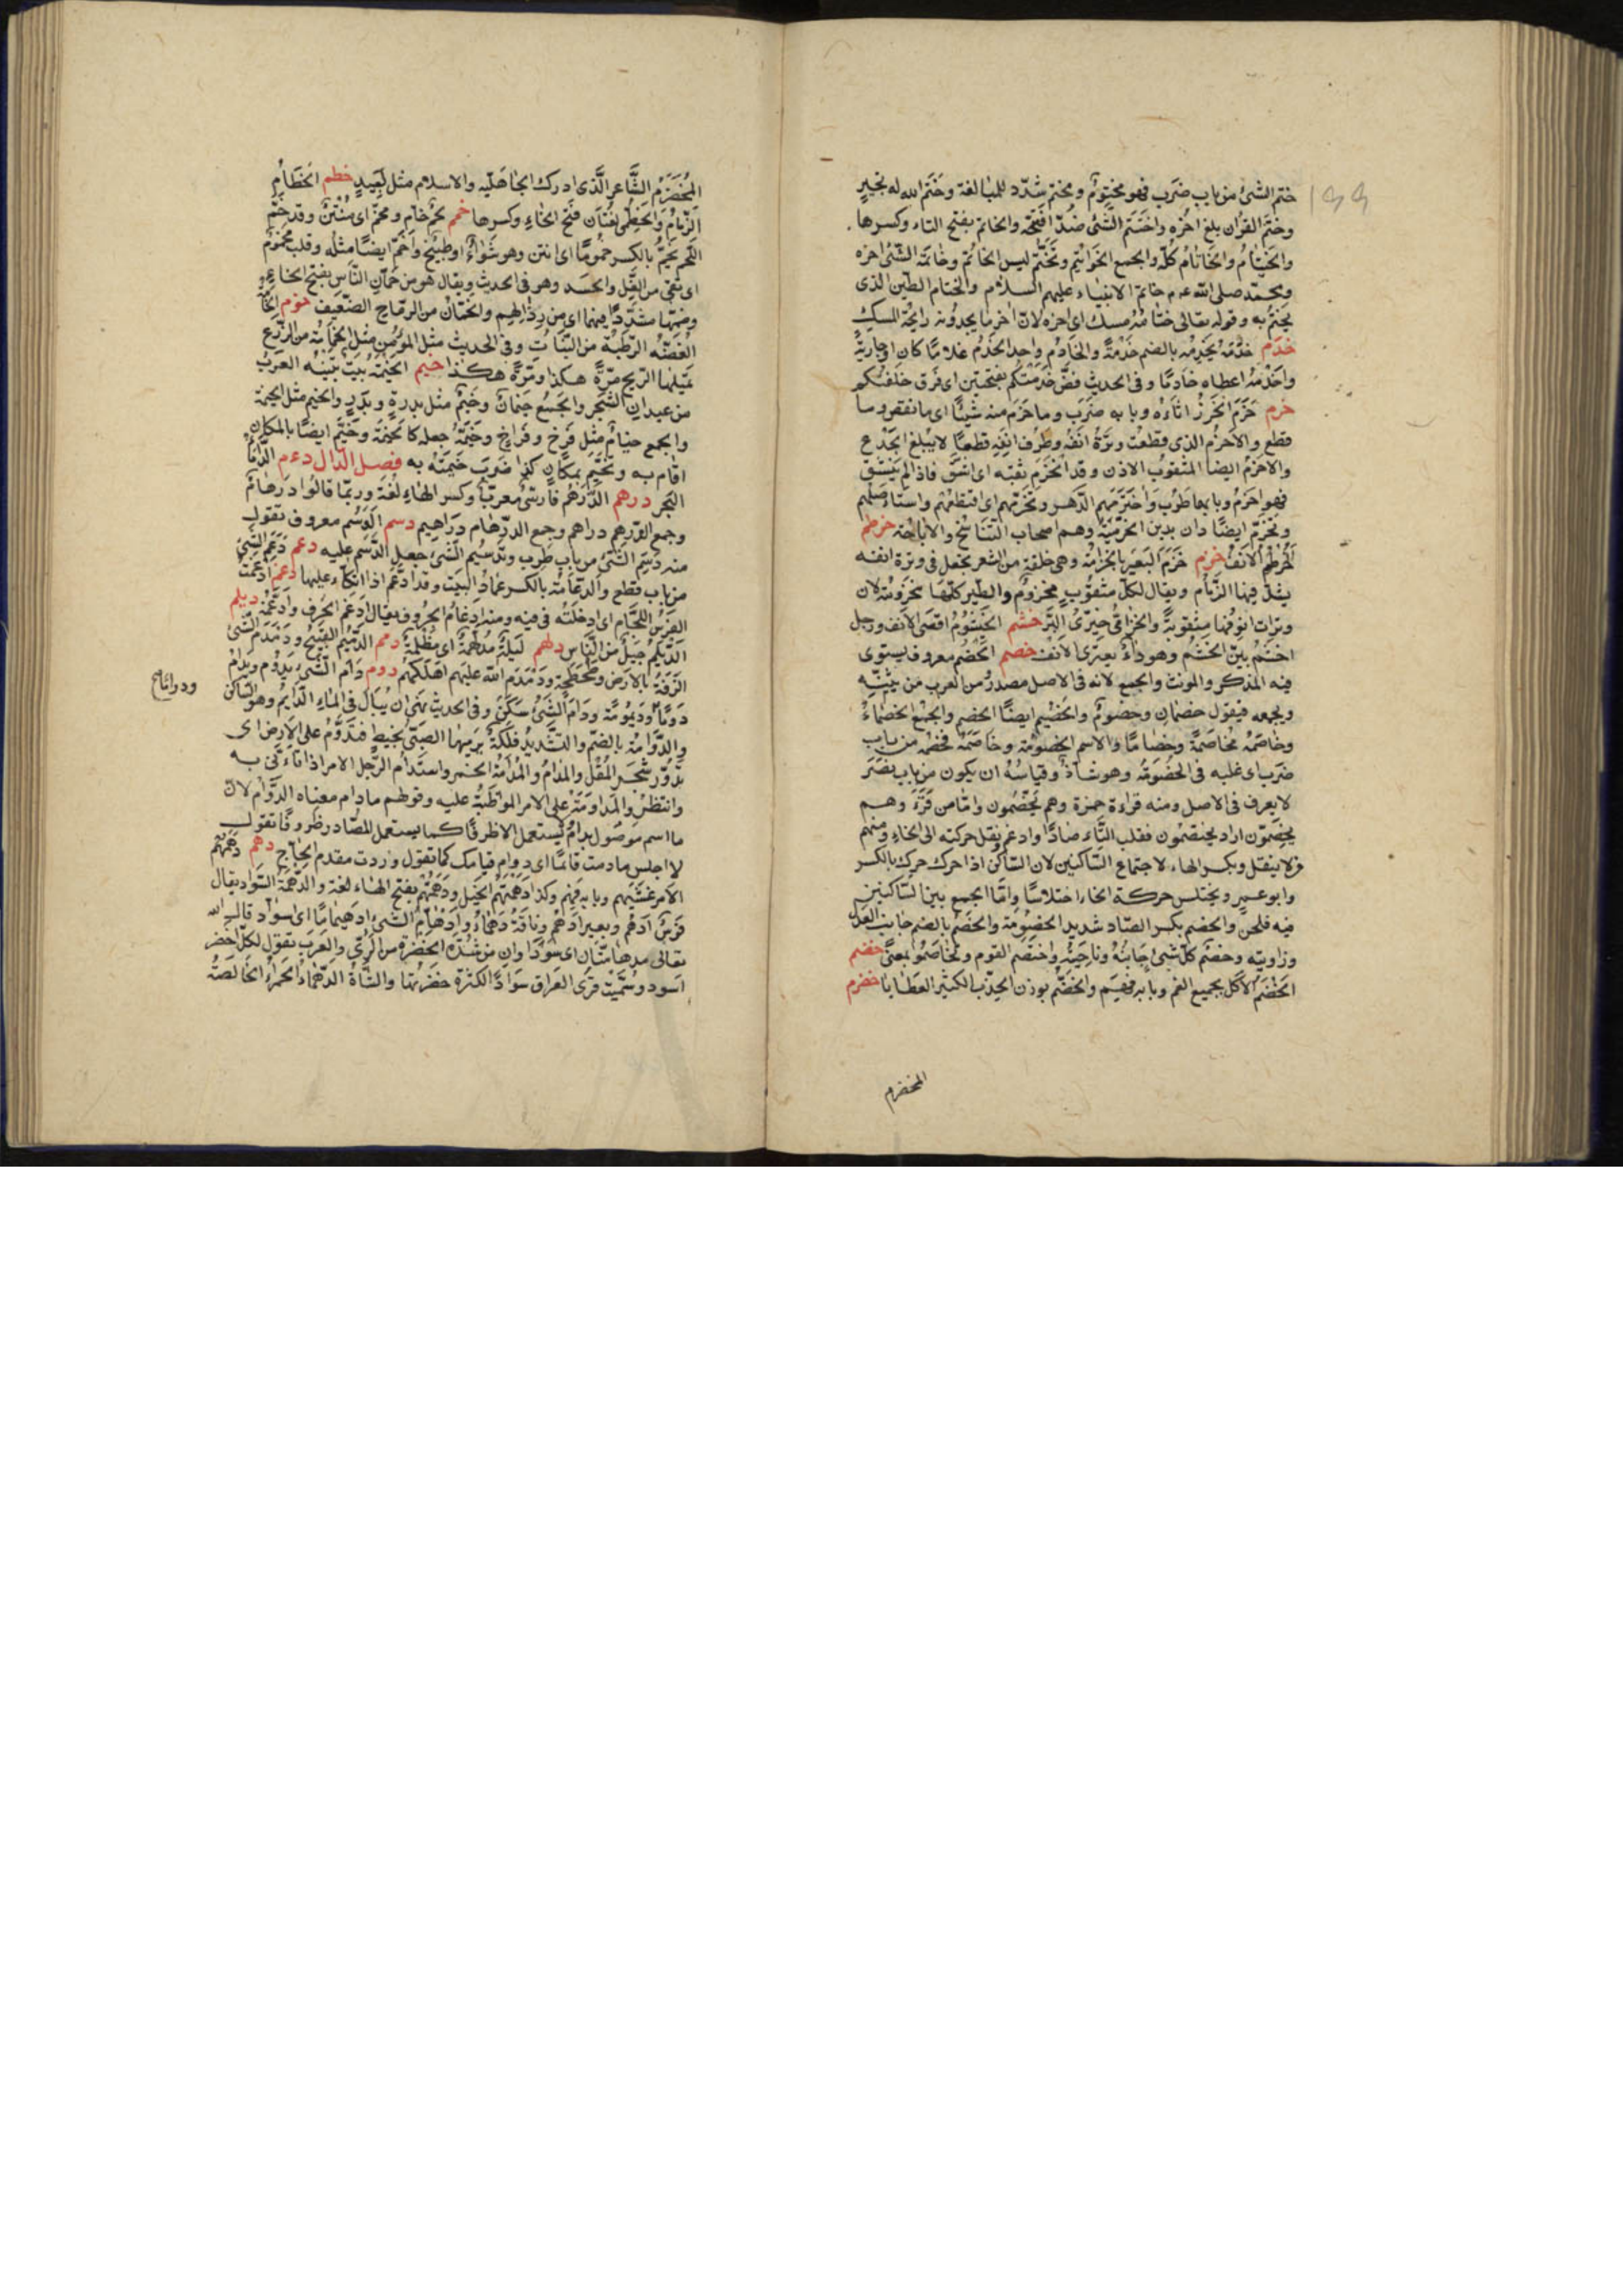 ختم الشئ من باب ضرب فهو مختوم ومختم شدّد للمبالغة وختم الله له بخير
وختم القرآن بلغ اخره واختتم الشئ ضدّ افتتحه والخاتم بفتح التاء وكسرها
والخيتام والخاتام كلّه والجمع الخواتيم وتختّم ليس الخاتم وخاتمة الشئ اخره
ومحمّد صلى الله عزم خاتم الانبياء عليهم السلام والختام الطين الذى
يختم به وقوله تعالى ختامه مسك اى اخره لانّ اخر ما يجدونه رايحة المسك
خدم خدَمَه يخدمه بالضم خدمةً والخادم واحد الخدم غلامًا كان او جاريةً
واخدَمَه اعطاه خادمًا وفى الحديث فضّ خدمتكم بفتحتين اى فرق خلفتكم
خرم خَرَم الخرز اثآه وبابه ضرب وما خرم منه شيئًا اى ما نقص وما
قطع والاخرم الذى قطعت وترة انفه وطرف انفه قطعًا لا يبلغ الجدع
والاخرم ايضا المثقوب الاذن وقد انخرم ثقبه اى انشق فاذا لم ينشق
فهو اخرم وبابهما طرب واخترمهم الدهر وتخرّمهم اى اقتطعهم واستاصلهم
وتخرّم ايضًا دان بدين الخرّميّة وهم اصحاب التناسخ والاباحة خرطم
الخرطم الانف خزم خزم البعير بالخزامة وهى حلقة من الشعر تجعل فى وترة انفه
يشدّ فيها الزمام ويقال لكلّ مثقوب مخزوم والطير كلّها مخزومة لان
وترات انوفها مثقوبة والخزامى خيرى البرّ خشم الخيشوم اقصى الانف ورجل
اخشم بيّن الخشم وهو داء يعترى الانف خصم الخصم معروف يستوى
فيه المذكر والمونث والجمع لانه فى الاصل مصدر ومن العرب من يثنّيه
ويجمعه فيقول خصمان وخصوم والخصيم ايضًا الخصم والجمع الخصماء
وخاصمه مخاصمةً وخصامًا والاسم الخصومة وخاصمه فخصمه من باب
ضرب اى غلبه فى الخصومة وهو شاذ وقياسه ان يكون من باب نصر
لا يعرف فى الاصل ومنه قراءة حمزة وهم يخصمون وامّا من قرَأ وهم
يخصّمون اراد يختصمون فقلب التاء صادًا وادغم ونقل حركته الى الخاء ومنهم
من لا ينقل ويكسر الهاء لاجتماع السّاكنين لان السّاكن اذا حرك حرك بالكسر
وابو عمرو يختلس حركة الخاء اختلاسًا وامّا الجمع بين السّاكنين
فيه فلحن والخصم بكسر الصّاد شديد الخصومة والخصم بالضم جانب العدل
وزاويته وخصم كلّ شئ جانبه وناحيته واختصم القوم وتخاصموا بمعنى خضم
الخضم الاكل بجميع الفم وبابه فهم والخضمّ بوزن الهجفّ الكثير العطايا خضرم
المخضرم
المخضرم الشّاعر الّذى ادرك الجاهليّة والاسلام مثل لبيد خطم الخطام
الزمام والخطمى لغتان فتح الخاء وكسرها خمم لحم خام ومخمّ اى منتن وقد خمّ
اللّحم يخمّ بالكسر خمومًا اى انتن وهو شواء او طبيخ واخمّ ايضًا مثله وقلب مخموم
اى نقى من الغل والحسد وهو فى الحديث ويقال هو من خمّان النّاس بفتح الخاء
وضمّها مشدّدًا فيهما اى من رذالهم والخمّان من الرماح الضعيف خوم الخامة
الغضّة الرطبة من النّبات وفى الحديث مثل المؤمن مثل الخامة من الزرع
تميّلها الريح مرّةً هكذا ومرّةً هكذا خيم الخيمة بيت تبنيه العرب
من عيدان الشّجر والجمع خيمات وخيم مثل بدرة وبدر والخيم مثل الخيمة
والجمع خيام مثل فرخ وفراخ وخيّمه جعله كالخيمة وخيّم ايضًا بالمكان
اقام به وتخيّم بمكان كذا ضرب خيمته به فصل الدّال دءم الدأماء
البحر درهم الدّرهم فارسىّ معرّب وكسر الهاء لغة وربّما قالوا درهام
وجمع الدّرهم دراهم وجمع الدّرهام دراهيم دسم الدّسم معروف تقول
منه دسم الشّئ من باب طرب وتدسيم الشّئ جعل الدّسم عليه دعم دعم الشئ
من باب قطع والدّعامة بالكسر عماد البيت وقد ادّعم اذا اتّكأ عليها دغم ادغمت
الفرس اللّجام اى ادخلته فى فيه ومنه ادغام الحروف يقال ادغم الحرف وادّغمه ديلم
الدّيلم جيل من النّاس دلهم ليلة مدلهمّة اى مظلمة دمم الدّميم القبيح ودمدم الشّئ
الزقة بالارض وطحطحه ودمدم الله عليهم اهلكهم دوم دام الشّئ يدوم ويدام
دومًا ودواما وديمومة ودام الشئ سكن وفى الحديث نهى ان يبال فى الماء الدّايم وهو السّاكن
والدّوّامة بالضمّ والتّشديد فلكة يرميها الصبىّ بخيط فتدوّم على الارض اى
تدور شجر المقل والمدام والمدامة الخمر واستدام الرّجل الامر اذا تأنّى به
وانتظر والمداومة على الامر المواظبة عليه وقولهم ما دام معناه الدّوام لانّ
ما اسم موصول بدام ولا يستعمل الاّ ظرفًا كما يستعمل المصادر ظروفًا تقول
لا اجلس ما دمت قائمًا اى دوام قيامك كما تقول وردت مقدم الحاجّ دهم دهمهم
الامر غشيهم وبابه فهم وكذا دهمتهم الخيل ودهمهم بفتح الهاء لغة والدّهمة السّواد يقال
فرس ادهم وبعير ادهم وناقة دهماء وادهامّ الشّئ ادهيمامًا اى اسوادّ قال الله
تعالى مدهامّتان اى سوداوان من شدّة الخضرة من الرّىّ والعرب تقول لكلّ اخضر
اسود وسمّيت قرى العراق سوادًا لكثرة خضرتها والشّاة الدّهماء الحمراء الخالصة